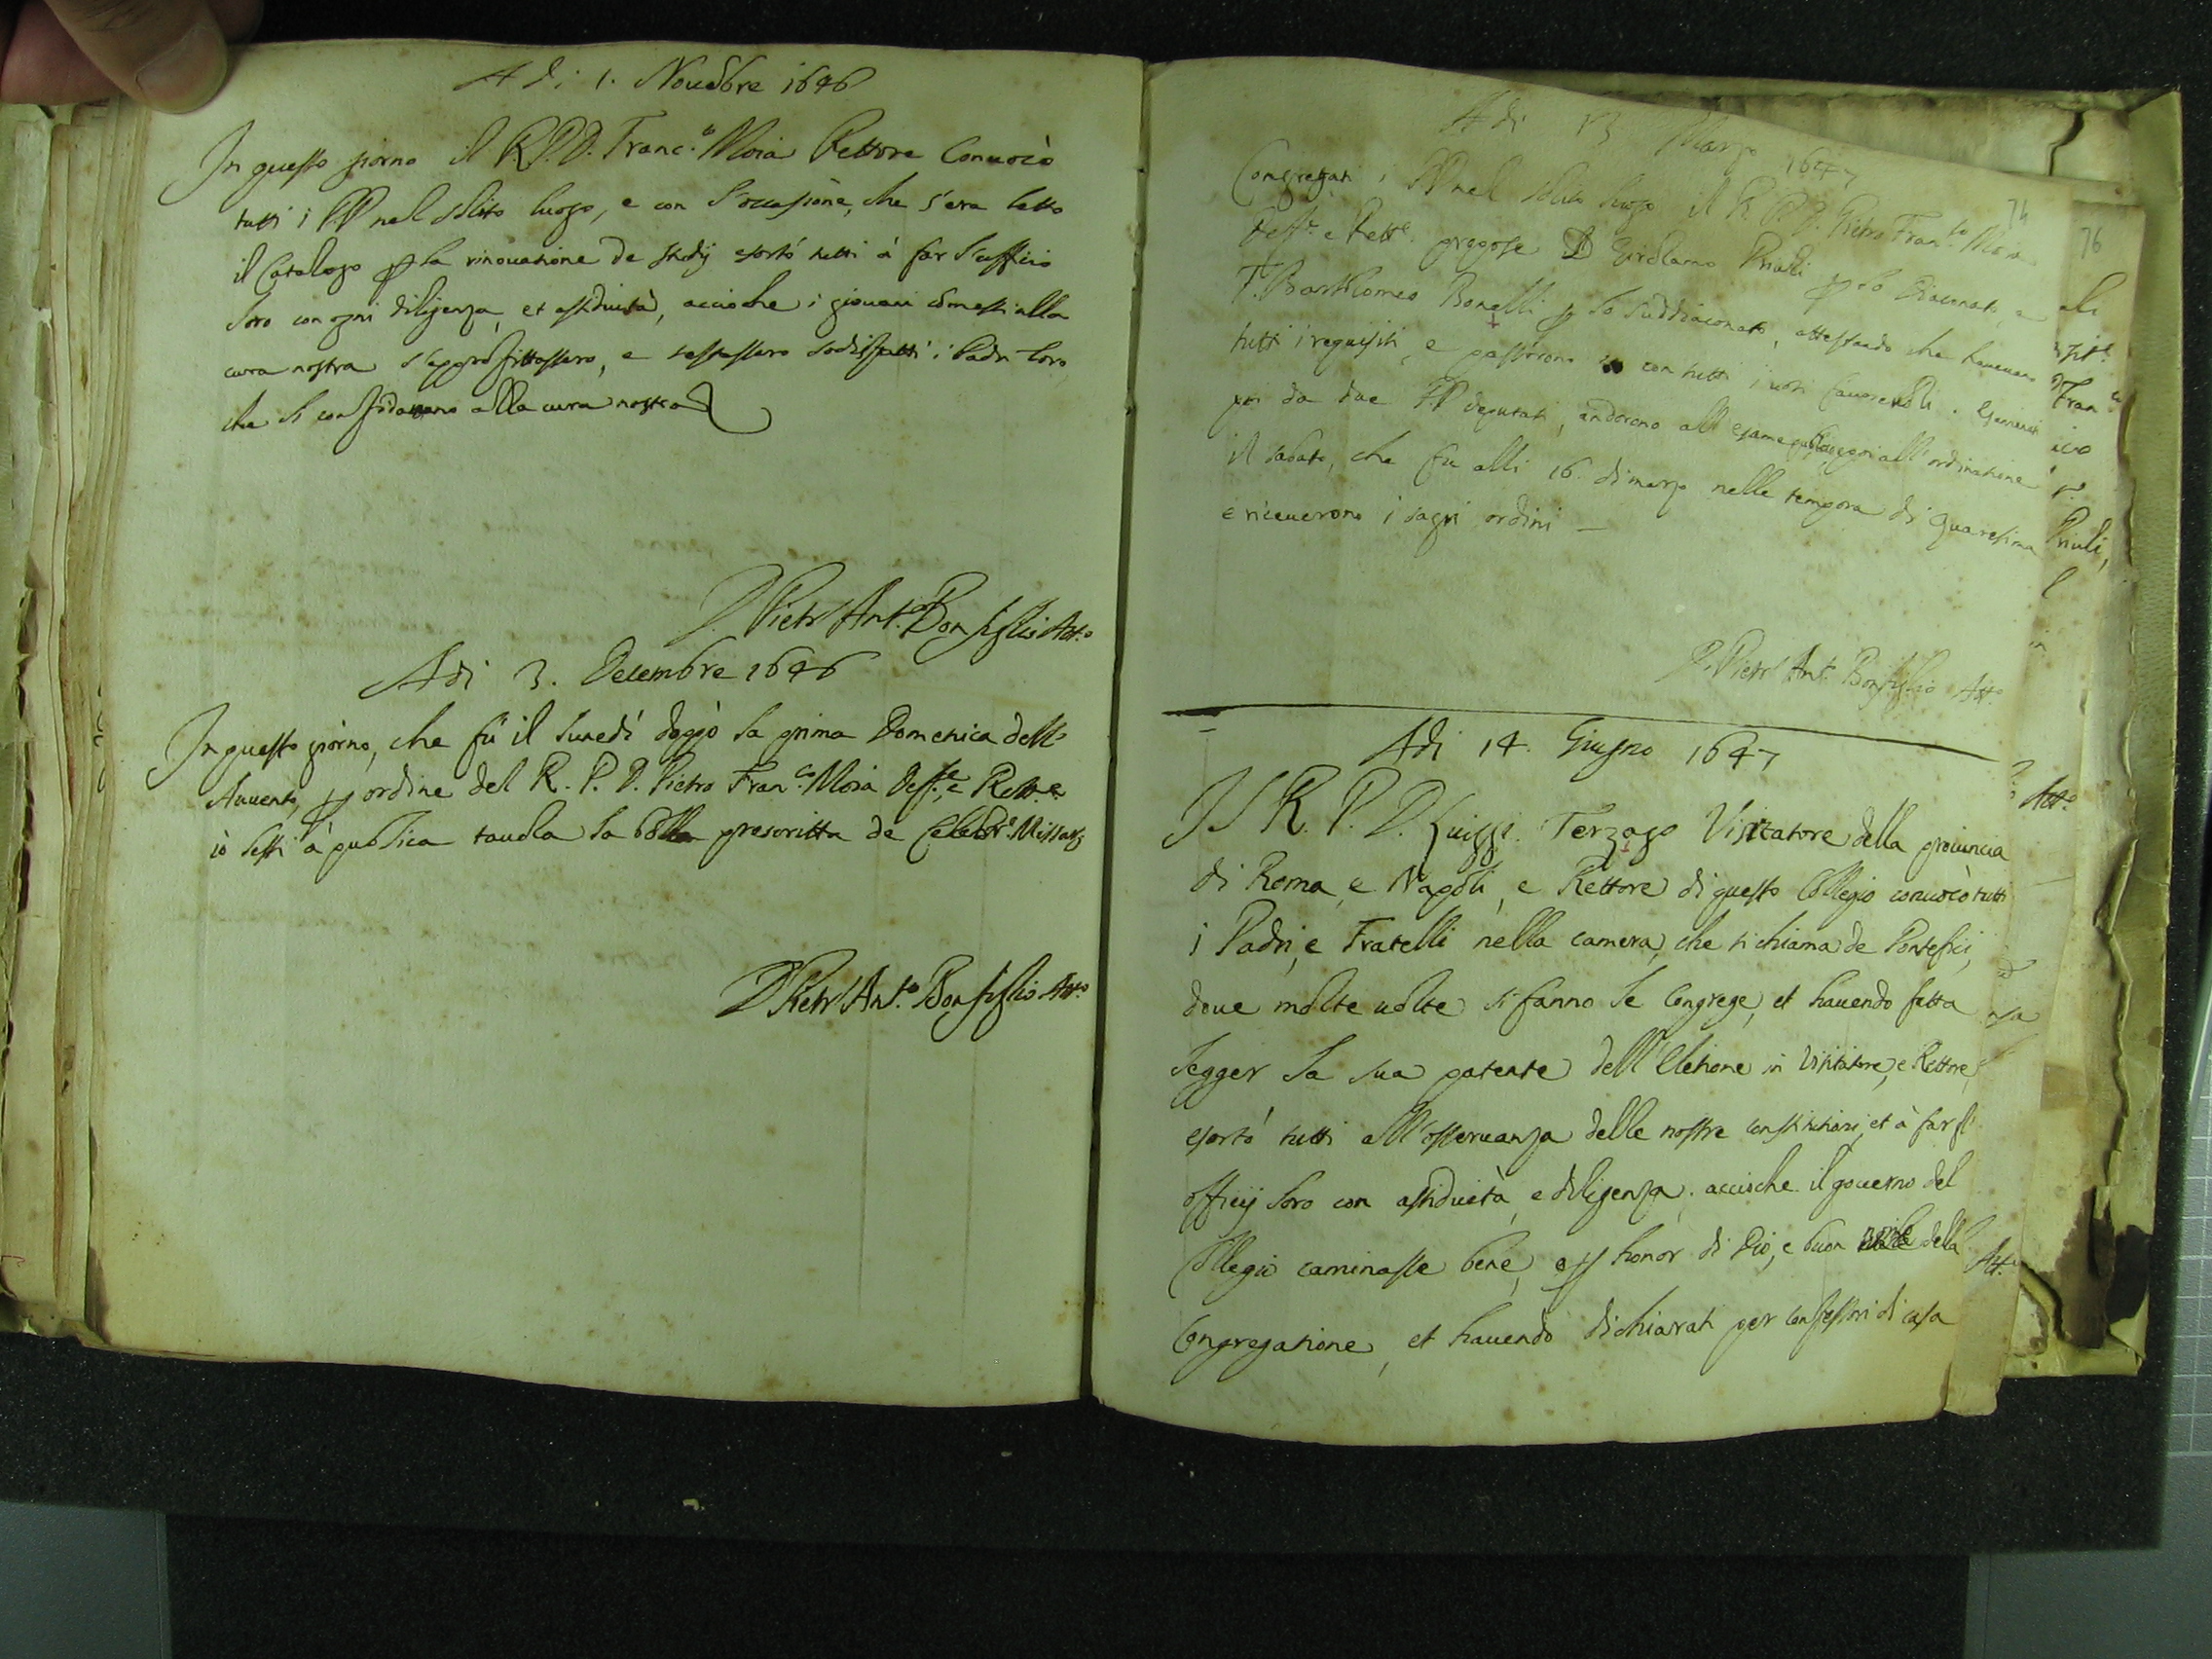 A di 1. Nouẽbre 1646
In questo giorno il R. P. D. Franc.º Moia Rettore Conuocò
tutti i PP nel solito luogo, e con l'occasione, che s'era letto
il Catalogo ꝑ la rinouatione de studij esortò tutti à far l'officio
loro con ogni diligenza, et assiduità, accioche i giouani cõmessi alla
cura nostra s'approfittassero, e restassero sodisfatti i Padri loro,
che li confidauano alla cura nostra
D. Pietr' Ant.º Bonfiglio Att.º
Adi 3. Decembre 1646
In questo giorno, che fù il lunedì doppò la prima Domenica dell'
Auuento, ꝑ ordine del R. P. D. Pietro Fran.co Moia Deff.re e Rett.re
iò lessi à publica tauola la bolla prescritta de Celebr.e Missarꝫ
D Pietr' Ant.º Bonfiglio Att.º
Adi 13 Marzo 1647
74
76
Congregati i PP nel solito luogo il R. P. D. Pietro Fran.co Moia
Deff.re e Rett.e propose D Girolamo Priuli ꝑ lo Diaconato, e
F. Bartholomeo Bonelli ꝑ lo suddiaconato, attestando che haueuano
tutti i requisiti, e passorono con tutti i uoti fauoreuoli. Esaminati
poi da due PP deputati, andorono all'esame, poi all'ordinatione
il sabato, che fu alli 16. di marzo nelle tempora di Quaresima
e riceuerono i sagri ordini —
D. Pietr' Ant.º Bonfiglio Att.º
Adi 14. Giugno 1647
Il R. P. D. Luiggi Terzago Visitatore della prouincia
di Roma, e Napoli, e Rettore di questo Collegio conuocò tutti
i Padri, e Fratelli nella camera, che si chiama de Pontefici,
doue molte uolte si fanno le Congrege, et hauendo fatta
legger la sua patente dell'Eletione in Visitatore, e Rettore,
esortò tutti all'osseruanza delle nostre constitutioni, et à far gl'
officij loro con assiduità, e diligenza, accioche il gouerno del
Collegio caminasse bene, e ꝑ honor di Dio, e buon della
Congregatione, et hauendo dichiarati per confessori di casa
Fran
Priuli,
Att.º
Att.º